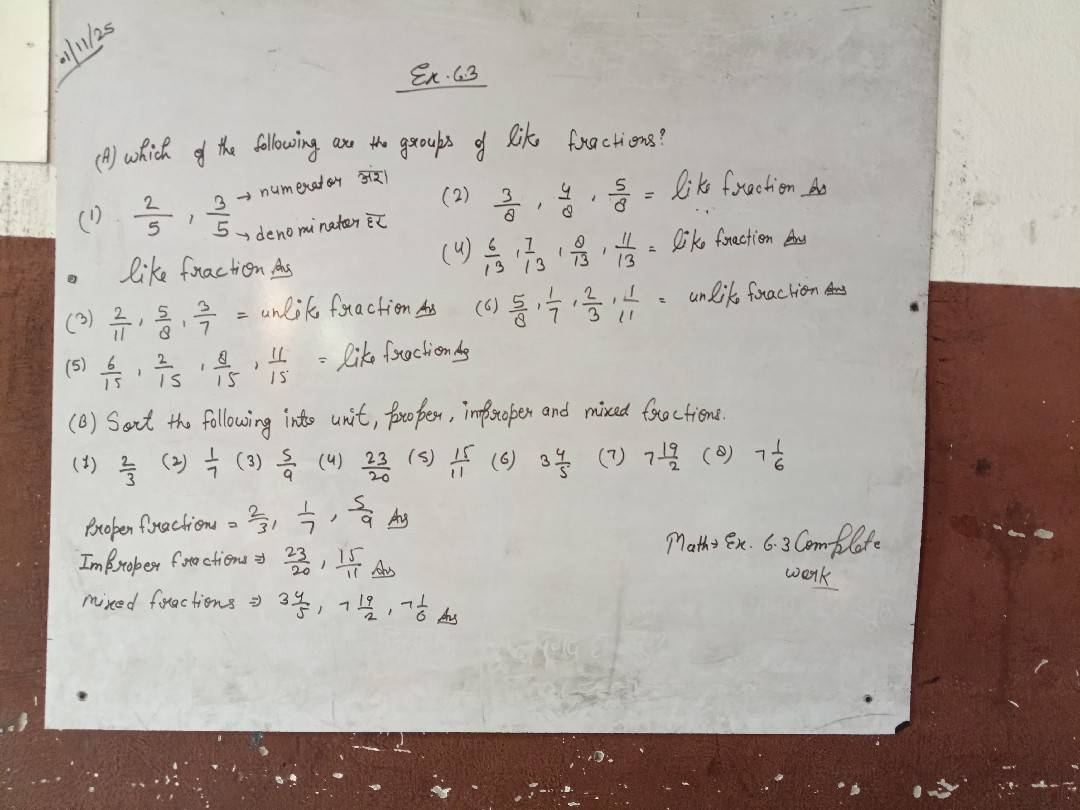 01/11/25
Ex. 6.3
(A) which of the following are the groups of like fractions?
(1) 2/5, 3/5 → numerator अंश
→ denominator हर
like fraction Ans
(2) 3/8, 4/8, 5/8 = like fraction Ans
(4) 6/13, 7/13, 8/13, 11/13 = like fraction Ans
(3) 2/11, 5/8, 3/7 = unlike fraction Ans (6) 5/8, 1/7, 2/3, 1/11 = unlike fraction Ans
(5) 6/15, 2/15, 8/15, 11/15 = like fraction Ans
(B) Sort the following into unit, proper, improper and mixed fractions.
(1) 2/3 (2) 1/7 (3) 5/9 (4) 23/20 (5) 15/11 (6) 3 4/5 (7) 7 19/2 (8) 7 1/6
Proper fractions = 2/3, 1/7, 5/9 Ans
Improper fractions ⇒ 23/20, 15/11 Ans
mixed fractions ⇒ 3 4/5, 7 19/2, 7 1/6 Ans
Math → Ex. 6.3 Complete
work